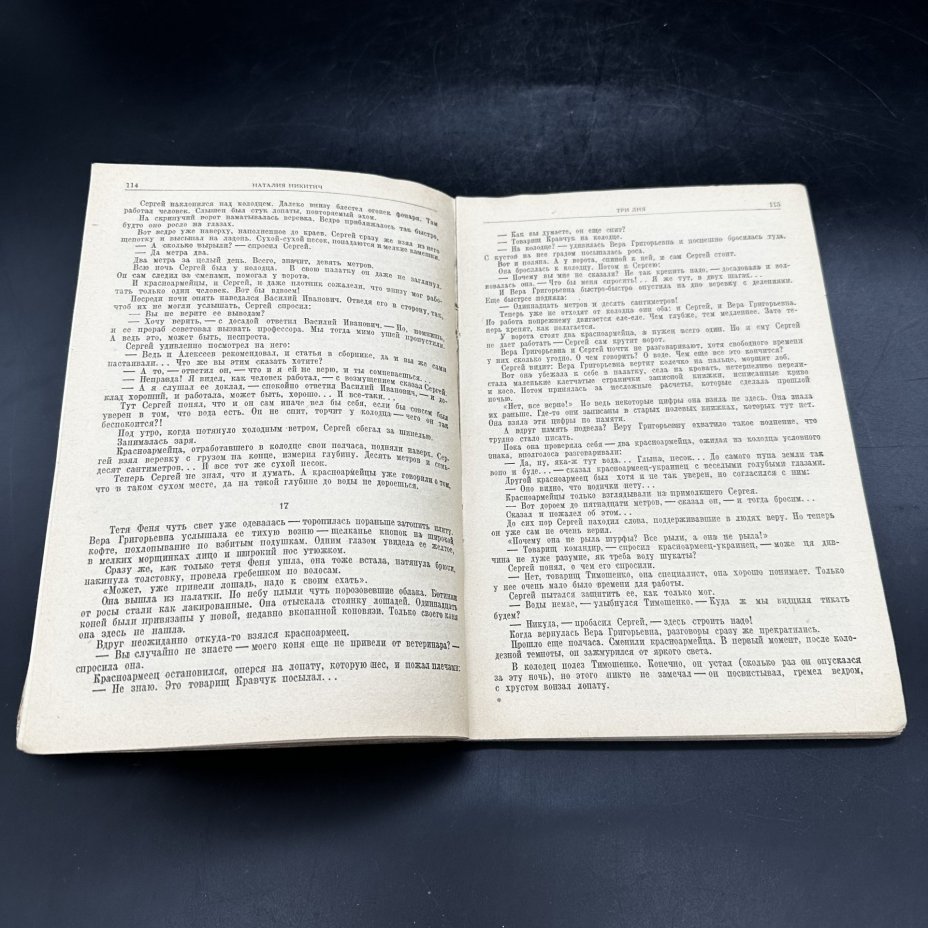 114
НАТАЛИЯ НИКИТИЧ
Сергей наклонился над колодцем. Далеко внизу блестел огонек фонаря. Там
работал человек. Слышен был стук лопаты, повторяемый эхом.
На скрипучий ворот наматывалась веревка. Ведро приближалось так быстро,
будто оно росло на глазах.
Вот ведро уже наверху, наполненное до краев. Сергей сразу же взял из него
щепотку и высыпал на ладонь. Сухой-сухой песок, попадаются и мелкие камешки.
— А сколько вырыли? — спросил Сергей.
— Да метра два.
Два метра за целый день. Всего, значит, девять метров.
Всю ночь Сергей был у колодца. В свою палатку он даже не заглянул.
Он сам следил за сменами, помогал у ворота.
И красноармейцы, и Сергей, и даже плотник сожалели, что внизу мог рабо-
тать только один человек. Вот бы вдвоем!
Посреди ночи опять наведался Василий Иванович. Отведя его в сторону, так,
чтоб их не могли услышать, Сергей спросил:
— Вы не верите ее выводам?
— Хочу верить, — с досадой ответил Василий Иванович. — Но, помнишь,
и ее прораб советовал вызвать профессора. Мы тогда мимо ушей пропустили.
А ведь это, может быть, неспроста.
Сергей удивленно посмотрел на него:
— Ведь и Алексеев рекомендовал, и статья в сборнике, да и вы же сами
настаивали... Что же вы этим сказать хотите?
— А то, — ответил он, — что и я ей не верю, и ты сомневаешься...
— Неправда! Я видел, как человек работал, — с возмущением сказал Сергей.
— А я слушал ее доклад, — спокойно ответил Василий Иванович, — и до-
клад хороший, и работала, может быть, хорошо... И все-таки...
Тут Сергей понял, что и он сам иначе вел бы себя, если бы совсем был
уверен в том, что вода есть. Он не спит, торчит у колодца — чего он так
беспокоится?!
Под утро, когда потянуло холодным ветром, Сергей сбегал за шинелью.
Занималась заря.
Красноармейца, отработавшего в колодце свои полчаса, подняли наверх. Сер-
гей взял веревку с грузом на конце, измерил глубину. Десять метров и семь-
десят сантиметров... И все тот же сухой песок.
Теперь Сергей не знал, что и думать. А красноармейцы уже говорили о том,
что в таком сухом месте, да на такой глубине до воды не дороешься.
17
Тетя Феня чуть свет уже одевалась — торопилась пораньше затопить плиту.
Вера Григорьевна услышала ее тихую возню — щелканье кнопок на широкой
кофте, похлопывание по взбитым подушкам. Одним глазом увидела ее желтое,
в мелких морщинках лицо и широкий нос утюжком.
Сразу же, как только тетя Феня ушла, она тоже встала, натянула брюки,
накинула толстовку, провела гребешком по волосам.
«Может, уже привели лошадь, надо к своим ехать».
Она вышла из палатки. По небу плыли чуть порозовевшие облака. Ботинки
от росы стали как лакированные. Она отыскала стоянку лошадей. Одиннадцать
коней были привязаны у новой, недавно вкопанной коновязи. Только своего коня
она здесь не нашла.
Вдруг неожиданно откуда-то взялся красноармеец.
— Вы случайно не знаете — моего коня еще не привели от ветеринара? —
спросила она.
Красноармеец остановился, оперся на лопату, которую нес, и пожал плечами:
— Не знаю. Это товарищ Кравчук посылал...
ТРИ ДНЯ
115
— Как вы думаете, он еще спит?
— Товарищ Кравчук на колодце.
— На колодце? — удивилась Вера Григорьевна и поспешно бросилась туда.
С кустов на нее градом посыпалась роса.
Вот и поляна. А у ворота, спиной к ней, и сам Сергей стоит.
Она бросилась к колодцу. Потом к Сергею:
— Почему вы мне не сказали? Не так крепить надо, — досадовала и вол-
новалась она. — Что бы меня спросить!... Я же тут, в двух шагах...
И Вера Григорьевна быстро-быстро опустила на дно веревку с делениями.
Еще быстрее подняла:
— Одиннадцать метров и десять сантиметров!
Теперь уже не отходят от колодца они оба: и Сергей, и Вера Григорьевна.
Но работа попрежнему двигается еле-еле. Чем глубже, тем медленнее. Зато те-
перь крепят, как полагается.
У ворота стоят два красноармейца, а нужен всего один. Но и ему Сергей
не дает работать — Сергей сам крутит ворот.
Вера Григорьевна и Сергей почти не разговаривают, хотя свободного времени
у них сколько угодно. О чем говорить? О воде. Чем еще все это кончится?
Сергей видит: Вера Григорьевна вертит колечко на пальце, морщит лоб.
Вот она убежала к себе в палатку, села на кровать, нетерпеливо перели-
стала маленькие клетчатые странички записной книжки, исписанные криво
и косо. Потом принялась за несложные расчеты, которые сделала прошлой
ночью.
«Нет, все верно!» Но ведь некоторые цифры она взяла не здесь. Она знала
их раньше. Где-то они записаны в старых полевых книжках, которых тут нет.
Она взяла эти цифры по памяти.
А вдруг память подвела? Веру Григорьевну охватило такое волнение, что
трудно стало писать.
Пока она проверяла себя — два красноармейца, ожидая из колодца условного
знака, вполголоса разговаривали:
— Да, ну, яка-ж тут вода... Глына, песок... До самого пупа земли так
воно и буде... — сказал красноармеец-украинец с веселыми голубыми глазами.
Другой красноармеец был хотя и не так уверен, но согласился с ним:
— Оно видно, что водички нету...
Красноармейцы только взглядывали на примолкшего Сергея.
— Вот дороем до пятнадцати метров, — сказал он, — и тогда бросим...
Сказал и пожалел об этом...
До сих пор Сергей находил слова, поддерживавшие в людях веру. Но теперь
он уже сам не очень верил.
«Почему она не рыла шурфы? Все рыли, а она не рыла!»
— Товарищ командир, — спросил красноармеец-украинец, — може ця див-
чина не дуже разумие, як треба воду шукаты?
Сергей понял, о чем его спросили.
— Нет, товарищ Тимошенко, она специалист, она хорошо понимает. Только
у нее очень мало было времени для работы.
Сергей пытался защитить ее, как только мог.
— Воды немае, — улыбнулся Тимошенко. — Куда ж мы видциля тикать
будем?
— Никуда, — пробасил Сергей, — здесь строить надо!
Когда вернулась Вера Григорьевна, разговоры сразу же прекратились.
Прошло еще полчаса. Сменили красноармейца. В первый момент, после коло-
дезной темноты, он зажмурился от яркого света.
В колодец полез Тимошенко. Конечно, он устал (сколько раз он опускался
за эту ночь), но этого никто не замечал — он посвистывал, гремел ведром,
с хрустом вонзал лопату.
*